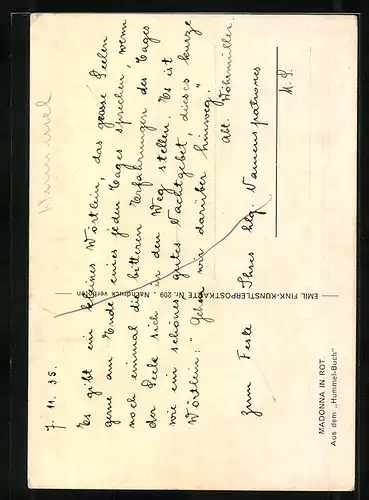 7. 11. 35.
Es gibt ein kleines Wörtlein, das grosse Seelen
gerne am Ende eines jeden Tages sprechen, wenn
noch einmal die bitteren Erfahrungen des Tages
der Seele sich in den Weg stellen. Es ist
wie ein schönes, gutes Nachtgebet, dieses kurze
Wörtlein: "Gehen wir darüber hinweg."
Abt. Höhenmüller.
Zum Feste Ihres hlg. Namenspatrones
M. P.
EMIL FINK-KÜNSTLERPOSTKARTE Nr. 209 Nachdruck verboten
MADONNA IN ROT
Aus dem „Hummel-Buch"
Hummel